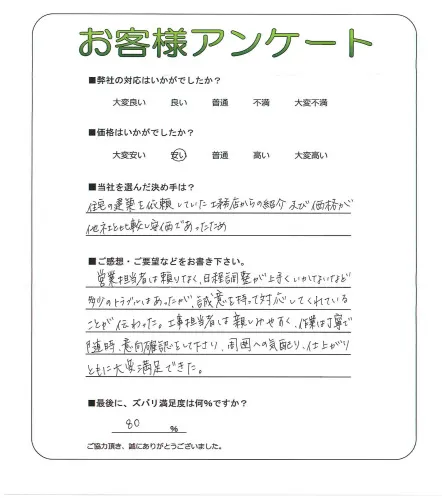 お客様アンケート
■弊社の対応はいかがでしたか？
大変良い 良い 普通 不満 大変不満
■価格はいかがでしたか？
大変安い 安い 普通 高い 大変高い
■当社を選んだ決め手は？
住宅の建築を依頼していた工務店からの紹介及び価格が
他社と比較し安価であったため
■ご感想・ご要望などをお書き下さい。
営業担当者は頼りなく、日程調整が上手くいかないなど
多少のトラブルはあったが、誠意を持って対応してくれている
ことが伝わった。工事担当者は親しみやすく、作業は丁寧で
随時、意向確認をして下さり、周囲への気配り、仕上がり
ともに大変満足できた。
■最後に、ズバリ満足度は何％ですか？
80 ％
ご協力頂き、誠にありがとうございました。